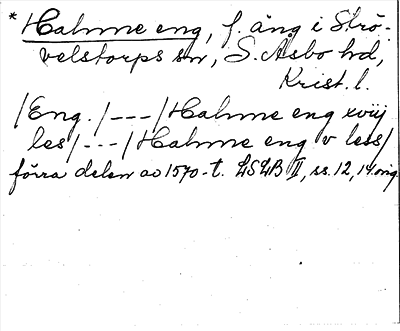 * Halmme eng, f. äng i Strö-
velstorps sn, S. Åsbo hd,
Krist. l.
/Eng./---/Halmme eng xviij
les/---/Halmme eng v less/
förra delen av 1570-t. LSLB II, ss. 12, 14 orig.